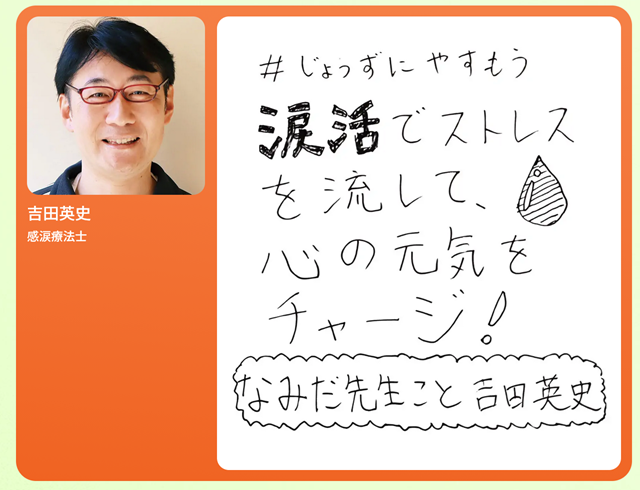 吉田英史
感涙療法士
#じょうずにやすもう
涙活でストレス
を流して、
心の元気を
チャージ!
なみだ先生こと吉田英史